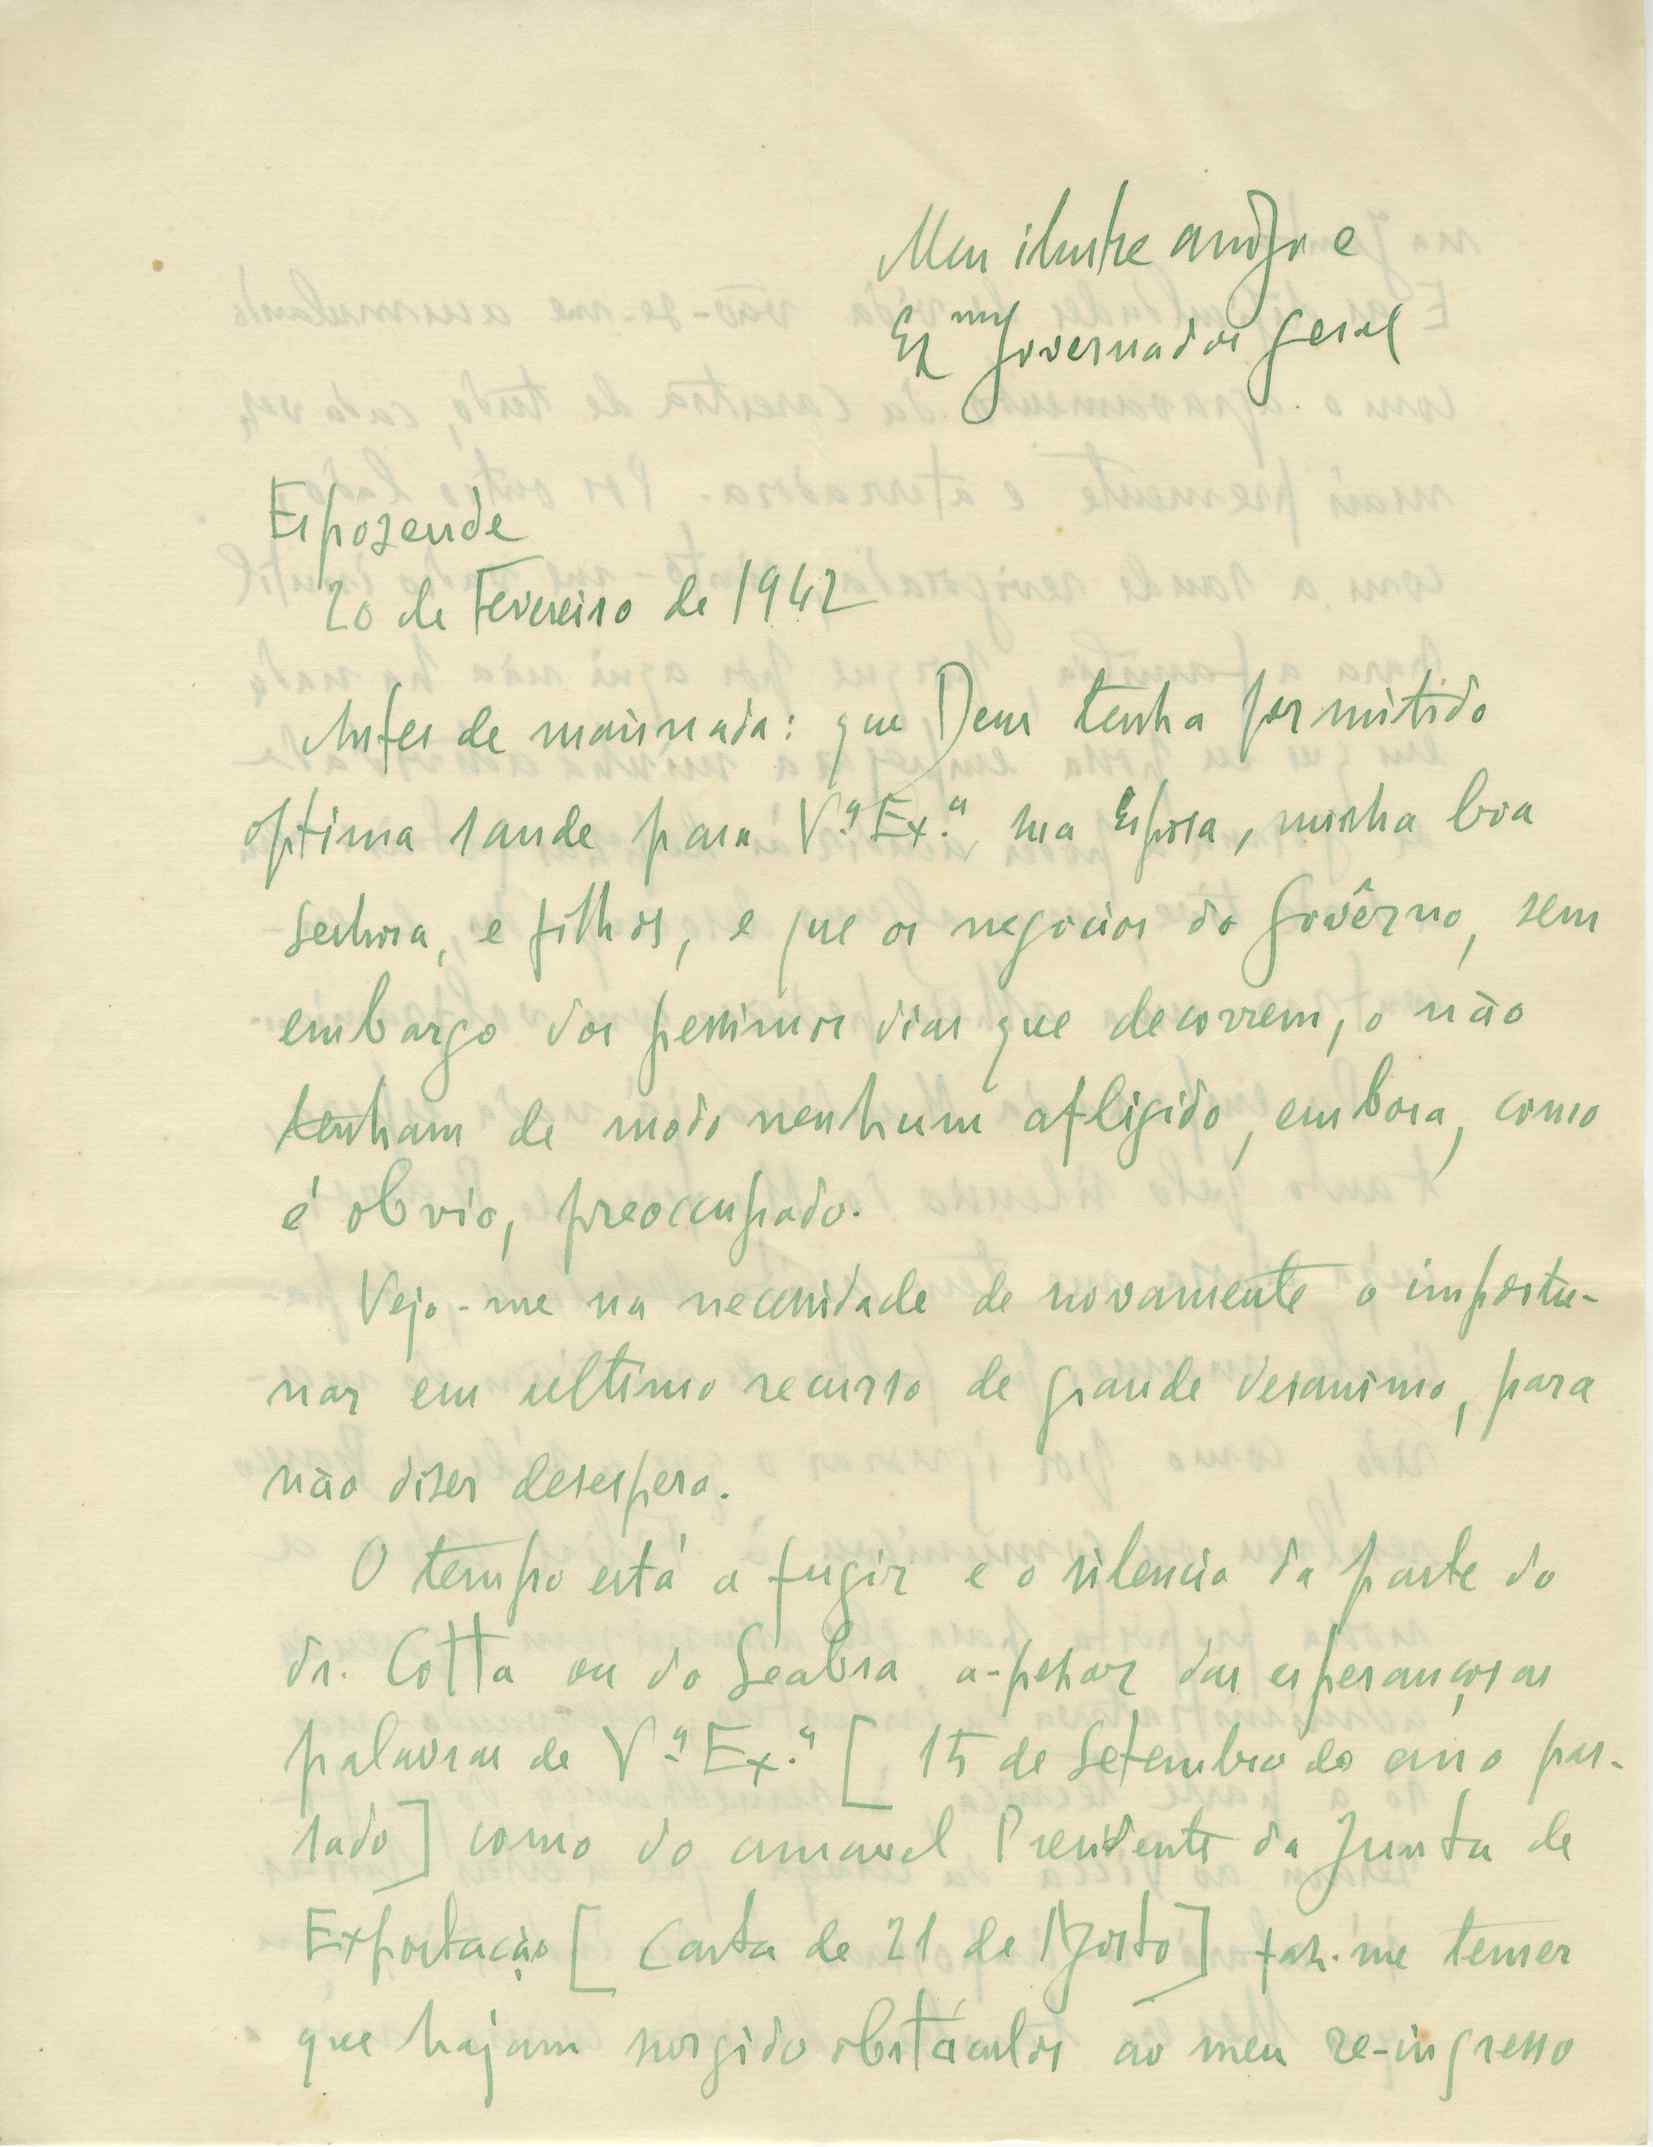 Meu ilustre amigo e
Exmo Governador Geral
Espozende
20 de Fevereiro de 1942
Antes de mais nada: que Deus tenha permitido
optima saude para V.ª Ex.ª sua Esposa, minha boa
Senhora, e filhos, e que os negocios do Govêrno, sem
embargo dos pessimos dias que decorrem, o não
tenham de modo nenhum afligido, embora, como
é obvio, preoccupado.
Vejo-me na necessidade de novamente o importu-
nar em ultimo recurso de grande desanimo, para
não dizer desespero.
O tempo está a fugir e o silencio da parte do
dr. Cotta ou do Seabra a-pesar das esperançosas
palavras de V.ª Ex.ª [15 de Setembro do ano pas-
sado] como do amavel Presidente da Junta de
Exportação [Carta de 21 de Agosto] faz-me temer
que hajam sorgido obstáculos ao meu re-ingresso